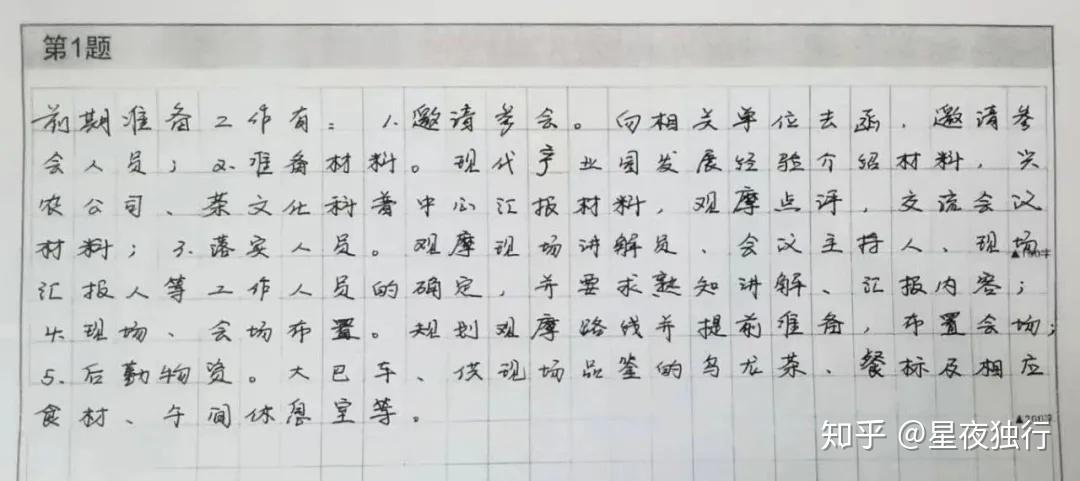 第1题
前期准备工作有：1.邀请参会。向相关单位去函，邀请参
会人员；2.准备材料。现代产业园发展经验介绍材料，兴
农公司、茶文化科普中心汇报材料，观摩点评，交流会议
材料；3.落实人员。观摩现场讲解员、会议主持人、现场
▲100字
汇报人等工作人员的确定，并要求熟知讲解、汇报内容；
4.现场、会场布置。规划观摩路线并提前准备，布置会场；
5.后勤物资。大巴车、供现场品鉴的乌龙茶、餐标及相应
食材、午间休息室等。
▲200字
知乎 @星夜独行